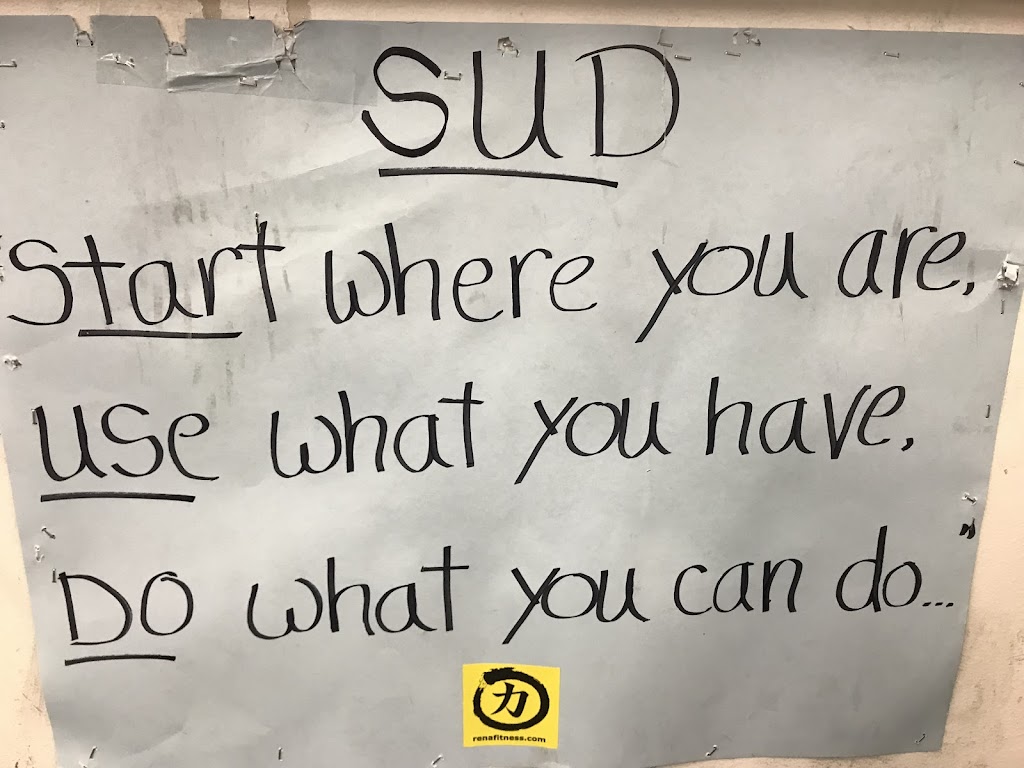 SUD
Start where you are,
use what you have,
Do what you can do...
力
renafitness.com